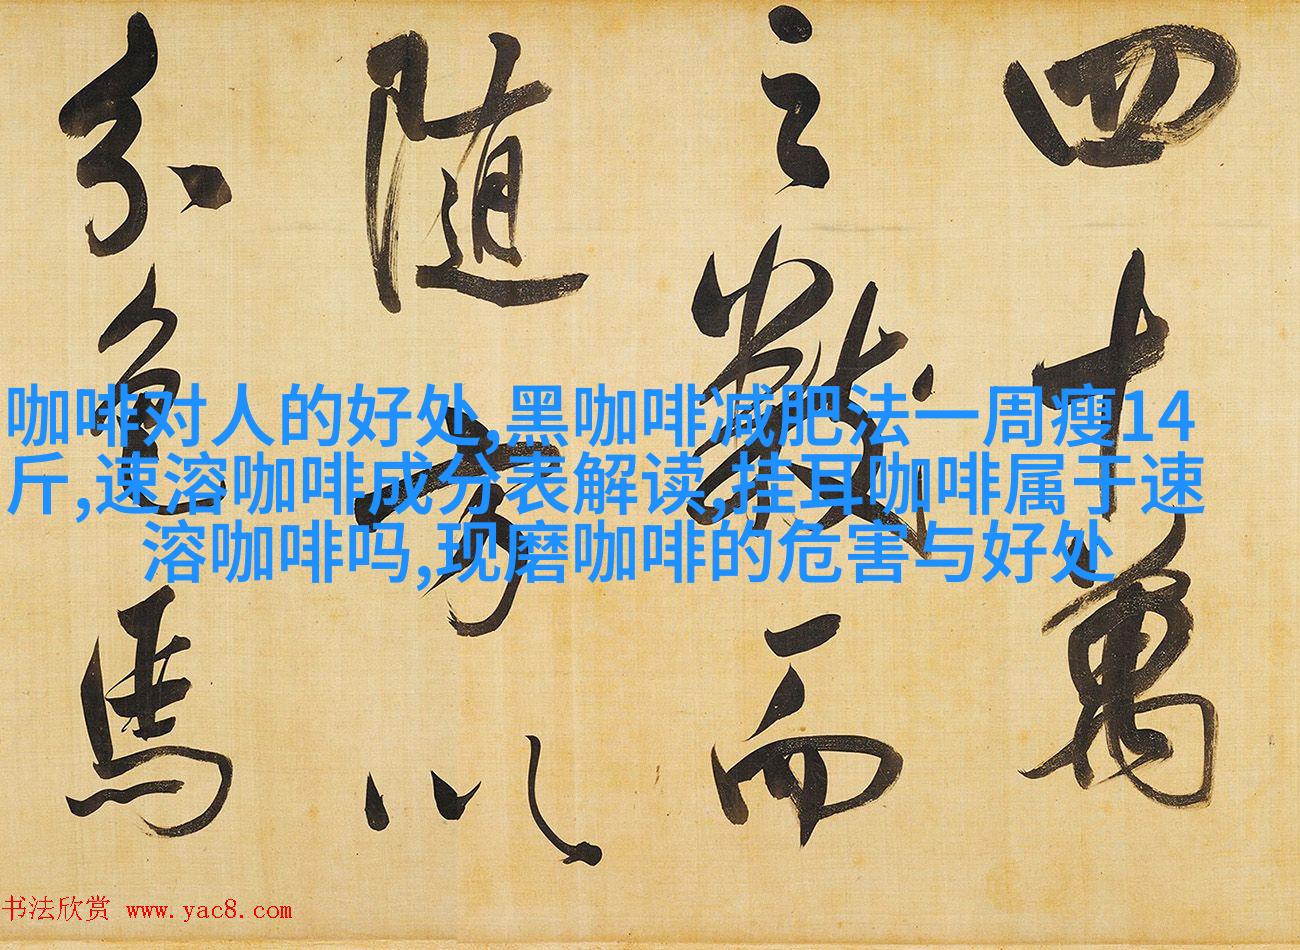 四十萬
之數而
隨方以
分色馬
咖啡对人的好处,黑咖啡减肥法一周瘦14
斤,速溶咖啡成分表解读,挂耳咖啡属于速
溶咖啡吗,现磨咖啡的危害与好处
书法欣赏 www.yac8.com